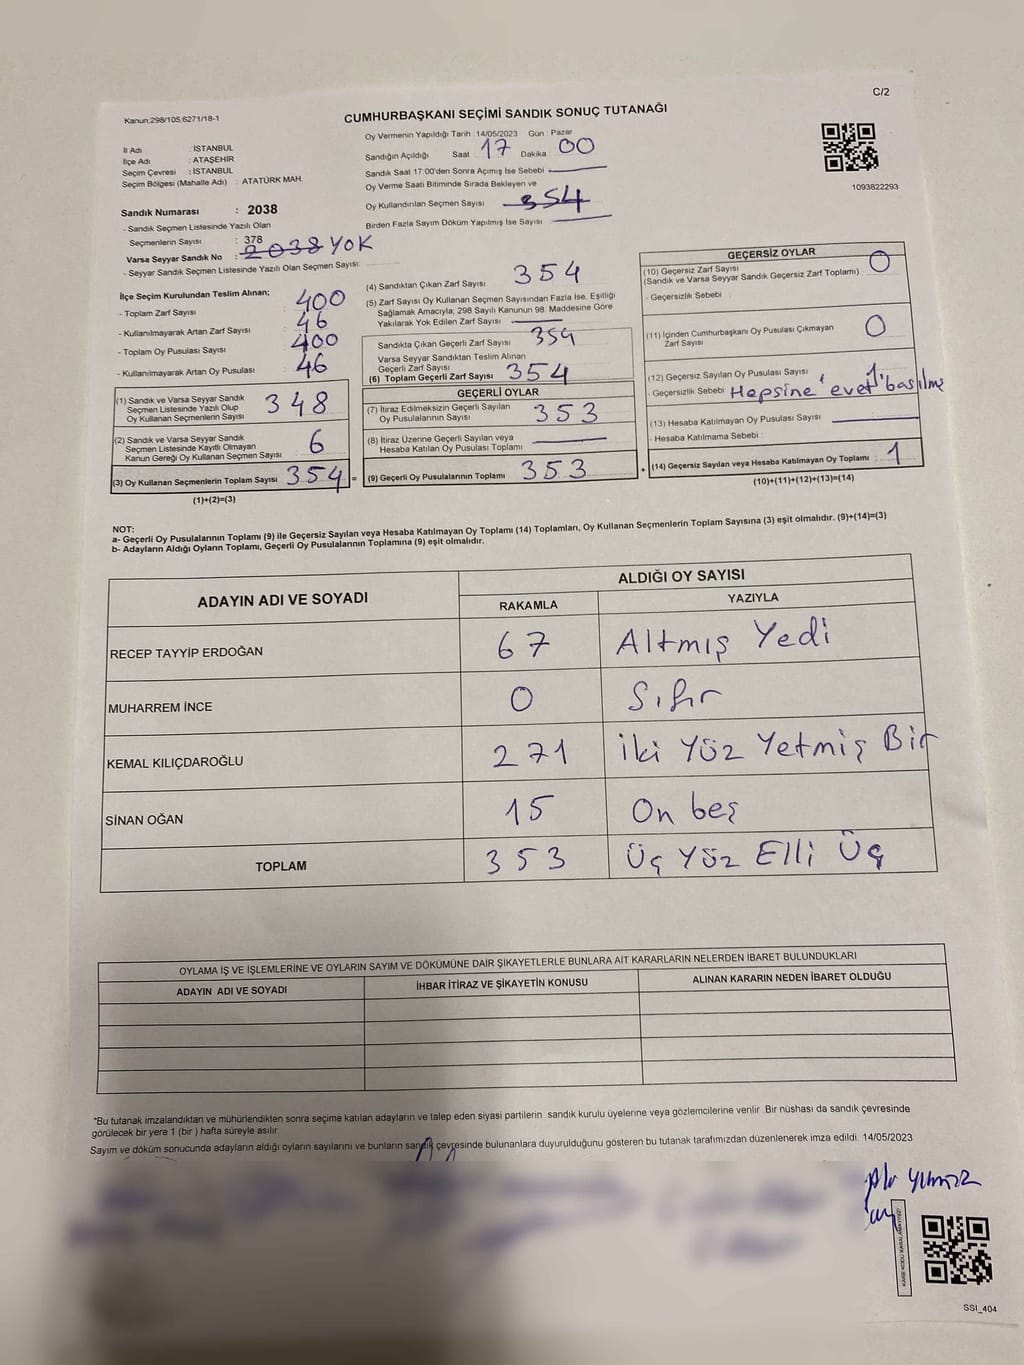 C/2
Kanun;298/105;6271/18-1
CUMHURBAŞKANI SEÇİMİ SANDIK SONUÇ TUTANAĞI
İl Adı : İSTANBUL
İlçe Adı : ATAŞEHİR
Seçim Çevresi : İSTANBUL
Seçim Bölgesi (Mahalle Adı) : ATATÜRK MAH.
Sandık Numarası : 2038
- Sandık Seçmen Listesinde Yazılı Olan
Seçmenlerin Sayısı : 378
Varsa Seyyar Sandık No : 2038 YOK
- Seyyar Sandık Seçmen Listesinde Yazılı Olan Seçmen Sayısı:
Oy Vermenin Yapıldığı Tarih : 14/05/2023 Gün : Pazar
Sandığın Açıldığı Saat : 17 Dakika 00
Sandık Saat 17:00'den Sonra Açımış İse Sebebi
Oy Verme Saati Bitiminde Sırada Bekleyen ve
Oy Kullandırılan Seçmen Sayısı 354
Birden Fazla Sayım Döküm Yapılmış İse Sayısı
1093822293
İlçe Seçim Kurulundan Teslim Alınan;
- Toplam Zarf Sayısı 400
- Kullanılmayarak Artan Zarf Sayısı 46
- Toplam Oy Pusulası Sayısı 400
- Kullanılmayarak Artan Oy Pusulası 46
(1) Sandık ve Varsa Seyyar Sandık
Seçmen Listesinde Yazılı Olup
Oy Kullanan Seçmenlerin Sayısı 348
(2) Sandık ve Varsa Seyyar Sandık
Seçmen Listesinde Kayıtlı Olmayan
Kanun Gereği Oy Kullanan Seçmen Sayısı 6
(3) Oy Kullanan Seçmenlerin Toplam Sayısı 354 =
(1)+(2)=(3)
(4) Sandıktan Çıkan Zarf Sayısı 354
(5) Zarf Sayısı Oy Kullanan Seçmen Sayısından Fazla İse, Eşitliği
Sağlamak Amacıyla; 298 Sayılı Kanunun 98. Maddesine Göre
Yakılarak Yok Edilen Zarf Sayısı
Sandıkta Çıkan Geçerli Zarf Sayısı 354
Varsa Seyyar Sandıktan Teslim Alınan
Geçerli Zarf Sayısı
(6) Toplam Geçerli Zarf Sayısı 354
GEÇERLİ OYLAR
(7) İtiraz Edilmeksizin Geçerli Sayılan
Oy Pusulalarının Sayısı 353
(8) İtiraz Üzerine Geçerli Sayılan veya
Hesaba Katılan Oy Pusulası Toplamı
(9) Geçerli Oy Pusulalarının Toplamı 353 +
GEÇERSİZ OYLAR
(10) Geçersiz Zarf Sayısı 0
(Sandık ve Varsa Seyyar Sandık Geçersiz Zarf Toplamı)
- Geçersizlik Sebebi :
(11) İçinden Cumhurbaşkanı Oy Pusulası Çıkmayan
Zarf Sayısı 0
(12) Geçersiz Sayılan Oy Pusulası Sayısı 1
- Geçersizlik Sebebi : Hepsine 'evet' basılme
(13) Hesaba Katılmayan Oy Pusulası Sayısı
- Hesaba Katılmama Sebebi :
(14) Geçersiz Sayılan veya Hesaba Katılmayan Oy Toplamı : 1
(10)+(11)+(12)+(13)=(14)
NOT:
a- Geçerli Oy Pusulalarının Toplamı (9) ile Geçersiz Sayılan veya Hesaba Katılmayan Oy Toplamı (14) Toplamları, Oy Kullanan Seçmenlerin Toplam Sayısına (3) eşit olmalıdır. (9)+(14)=(3)
b- Adayların Aldığı Oyların Toplamı, Geçerli Oy Pusulalarının Toplamına (9) eşit olmalıdır.
ADAYIN ADI VE SOYADI
ALDIĞI OY SAYISI
RAKAMLA YAZIYLA
RECEP TAYYİP ERDOĞAN 67 Altmış Yedi
MUHARREM İNCE 0 Sıfır
KEMAL KILIÇDAROĞLU 271 İki Yüz Yetmiş Bir
SİNAN OĞAN 15 On beş
TOPLAM 353 Üç Yüz Elli Üç
OYLAMA İŞ VE İŞLEMLERİNE VE OYLARIN SAYIM VE DÖKÜMÜNE DAİR ŞİKAYETLERLE BUNLARA AİT KARARLARIN NELERDEN İBARET BULUNDUKLARI
ADAYIN ADI VE SOYADI İHBAR İTİRAZ VE ŞİKAYETİN KONUSU ALINAN KARARIN NEDEN İBARET OLDUĞU
*Bu tutanak imzalandıktan ve mühürlendikten sonra seçime katılan adayların ve talep eden siyasi partilerin sandık kurulu üyelerine veya gözlemcilerine verilir. Bir nüshası da sandık çevresinde
görülecek bir yere 1 (bir) hafta süreyle asılır.
Sayım ve döküm sonucunda adayların aldığı oyların sayılarını ve bunların sandık çevresinde bulunanlara duyurulduğunu gösteren bu tutanak tarafımızdan düzenlenerek imza edildi. 14/05/2023
SSI_404